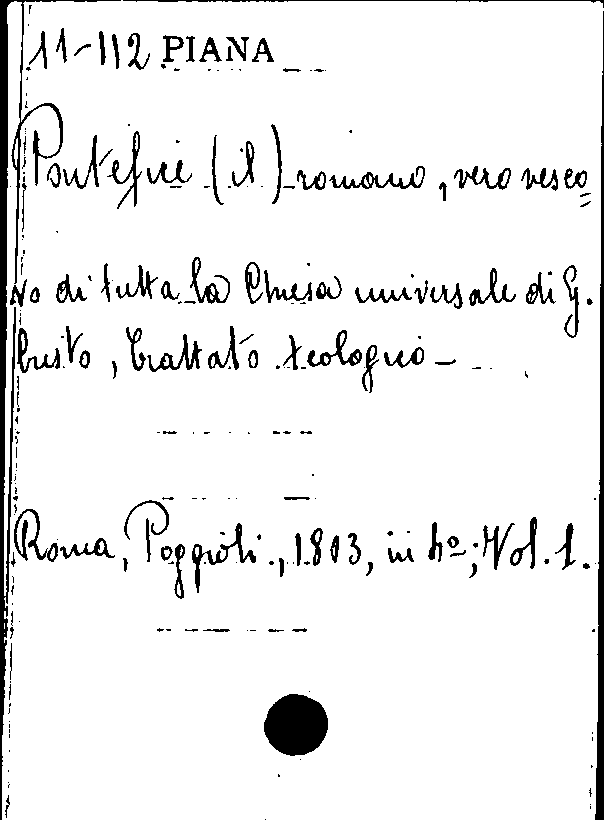 11-112 PIANA
Pontefice (il) romano, vero vesco=
vo di tutta la Chiesa universale di G.
Cristo, Trattato teologico —
Roma, Poggioli., 1803, in 4º; Vol. 1.